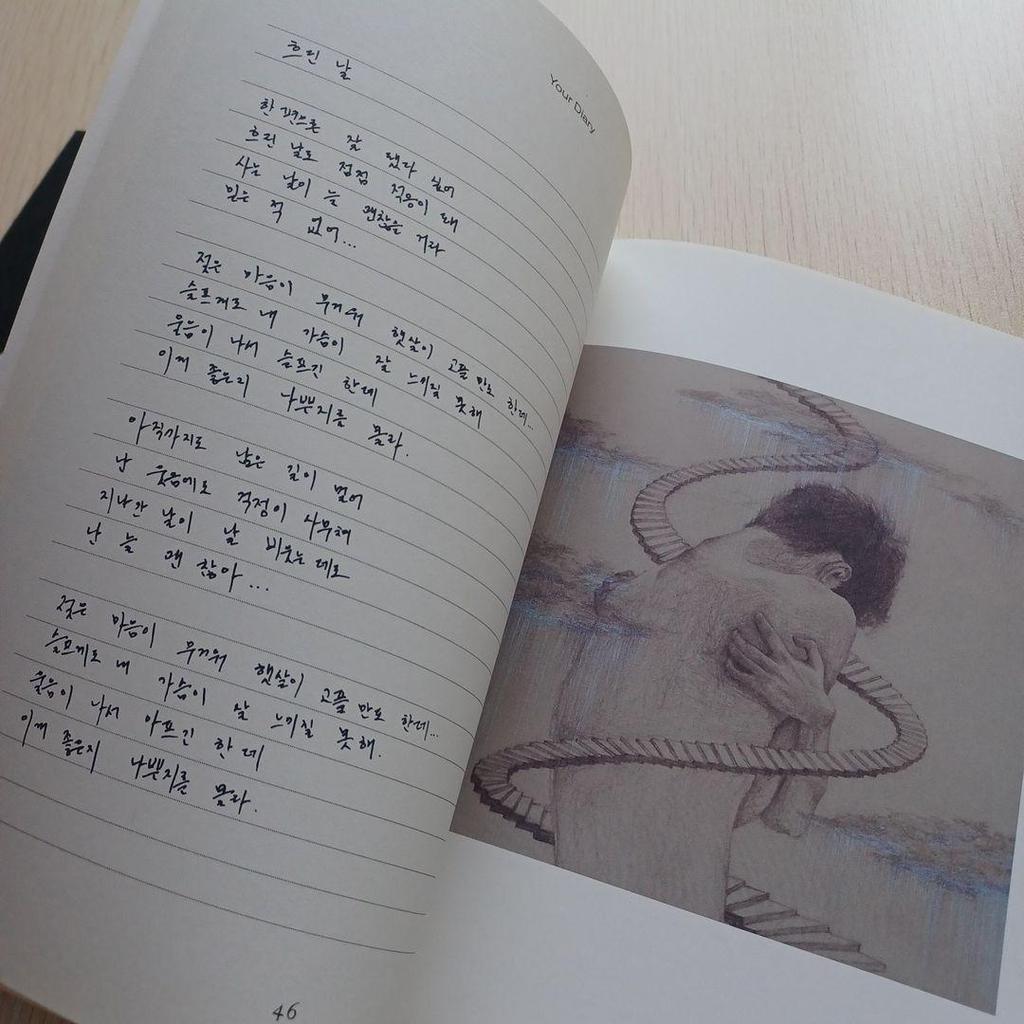 Your Diary
흐린 날
한편으론 잘 됐다 싶어
흐린 날도 점점 적응이 돼
사는 날이 늘 괜찮을 거라
믿은 적 없어...
젖은 마음이 무거워 햇살이 고플 만도 한데...
슬프게도 내 가슴이 잘 느끼질 못해
웃음이 나서 슬프긴 한데
이게 좋은지 나쁜지를 몰라.
아직까지도 남은 길이 멀어
난 웃음에도 걱정이 사무쳐
지나간 날이 날 비웃는데도
난 늘 괜찮아...
젖은 마음이 무거워 햇살이 고플 만도 한데...
슬프게도 내 가슴이 잘 느끼질 못해.
웃음이 나서 아프긴 한데
이게 좋은지 나쁜지를 몰라.
46